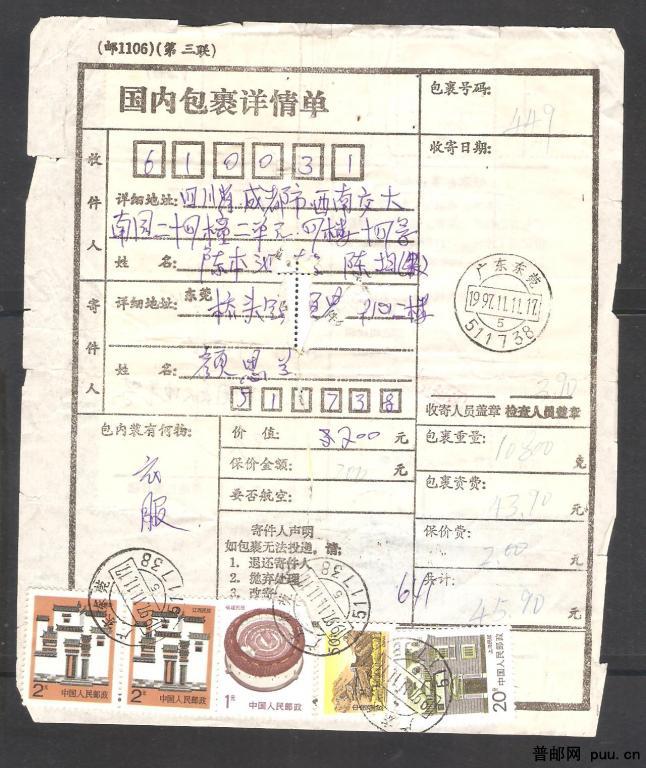 (邮1106)(第三联)
国内包裹详情单
包裹号码:
449
收寄日期:
收件人
610031
详细地址:四川省成都市西南交大
南园二十四幢二单元四楼十四号
姓 名:
寄件人
详细地址:东莞 桥头
二楼
姓 名: 颜恩兰
511738
广东东莞
1997.11.11.17
5
511738
2.90
收寄人员盖章 检查人员盖章
包内装有何物:
衣服
价 值: 200 元
保价金额: 元
要否航空:
包裹重量: 10800 克
包裹资费: 43.90 元
保价费: 2.00 元
共计: 45.90 元
寄件人声明
如包裹无法投递,请:
1. 退还寄件人
2. 抛弃处理
3. 改寄
江西民居
2元
中国人民邮政
江西民居
2元
中国人民邮政
福建民居
1元
中国人民邮政
上海民居
20分
中国人民邮政
普邮网 puu.cn